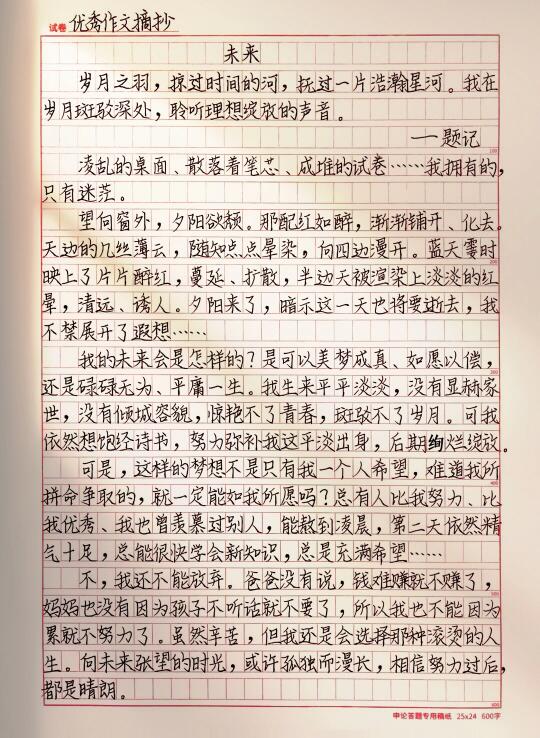 试卷 优秀作文摘抄
未来
岁月之羽，掠过时间的河，抚过一片浩瀚星河。我在
岁月斑驳深处，聆听理想绽放的声音。
——题记
凌乱的桌面、散落着笔芯、成堆的试卷……我拥有的，
只有迷茫。
望向窗外，夕阳欲颓。那酡红如醉，渐渐铺开、化去。
天边的几丝薄云，随知点点晕染，向四边漫开。蓝天霎时
映上了片片醉红，蔓延、扩散，半边天被渲染上淡淡的红
晕，清远、诱人。夕阳来了，暗示这一天也将要逝去，我
不禁展开了遐想……
我的未来会是怎样的？是可以美梦成真、如愿以偿，
还是碌碌无为、平庸一生。我生来平平淡淡，没有显赫家
世，没有倾城容貌，惊艳不了青春，斑驳不了岁月。可我
依然想饱经诗书，努力弥补我这平淡出身，后期绚烂绽放。
可是，这样的梦想不是只有我一个人希望，难道我所
拼命争取的，就一定能如我所愿吗？总有人比我努力、比
我优秀、我也曾羡慕过别人，能熬到凌晨，第二天依然精
气十足，总能很快学会新知识，总是充满希望……
不，我还不能放弃。爸爸没有说，钱难赚就不赚了，
妈妈也没有因为孩子不听话就不要了，所以我也不能因为
累就不努力了。虽然辛苦，但我还是会选择那种滚烫的人
生。向未来张望的时光，或许孤独而漫长，相信努力过后，
都是晴朗。
100
200
300
400
500
600
申论答题专用稿纸 25x24 600字